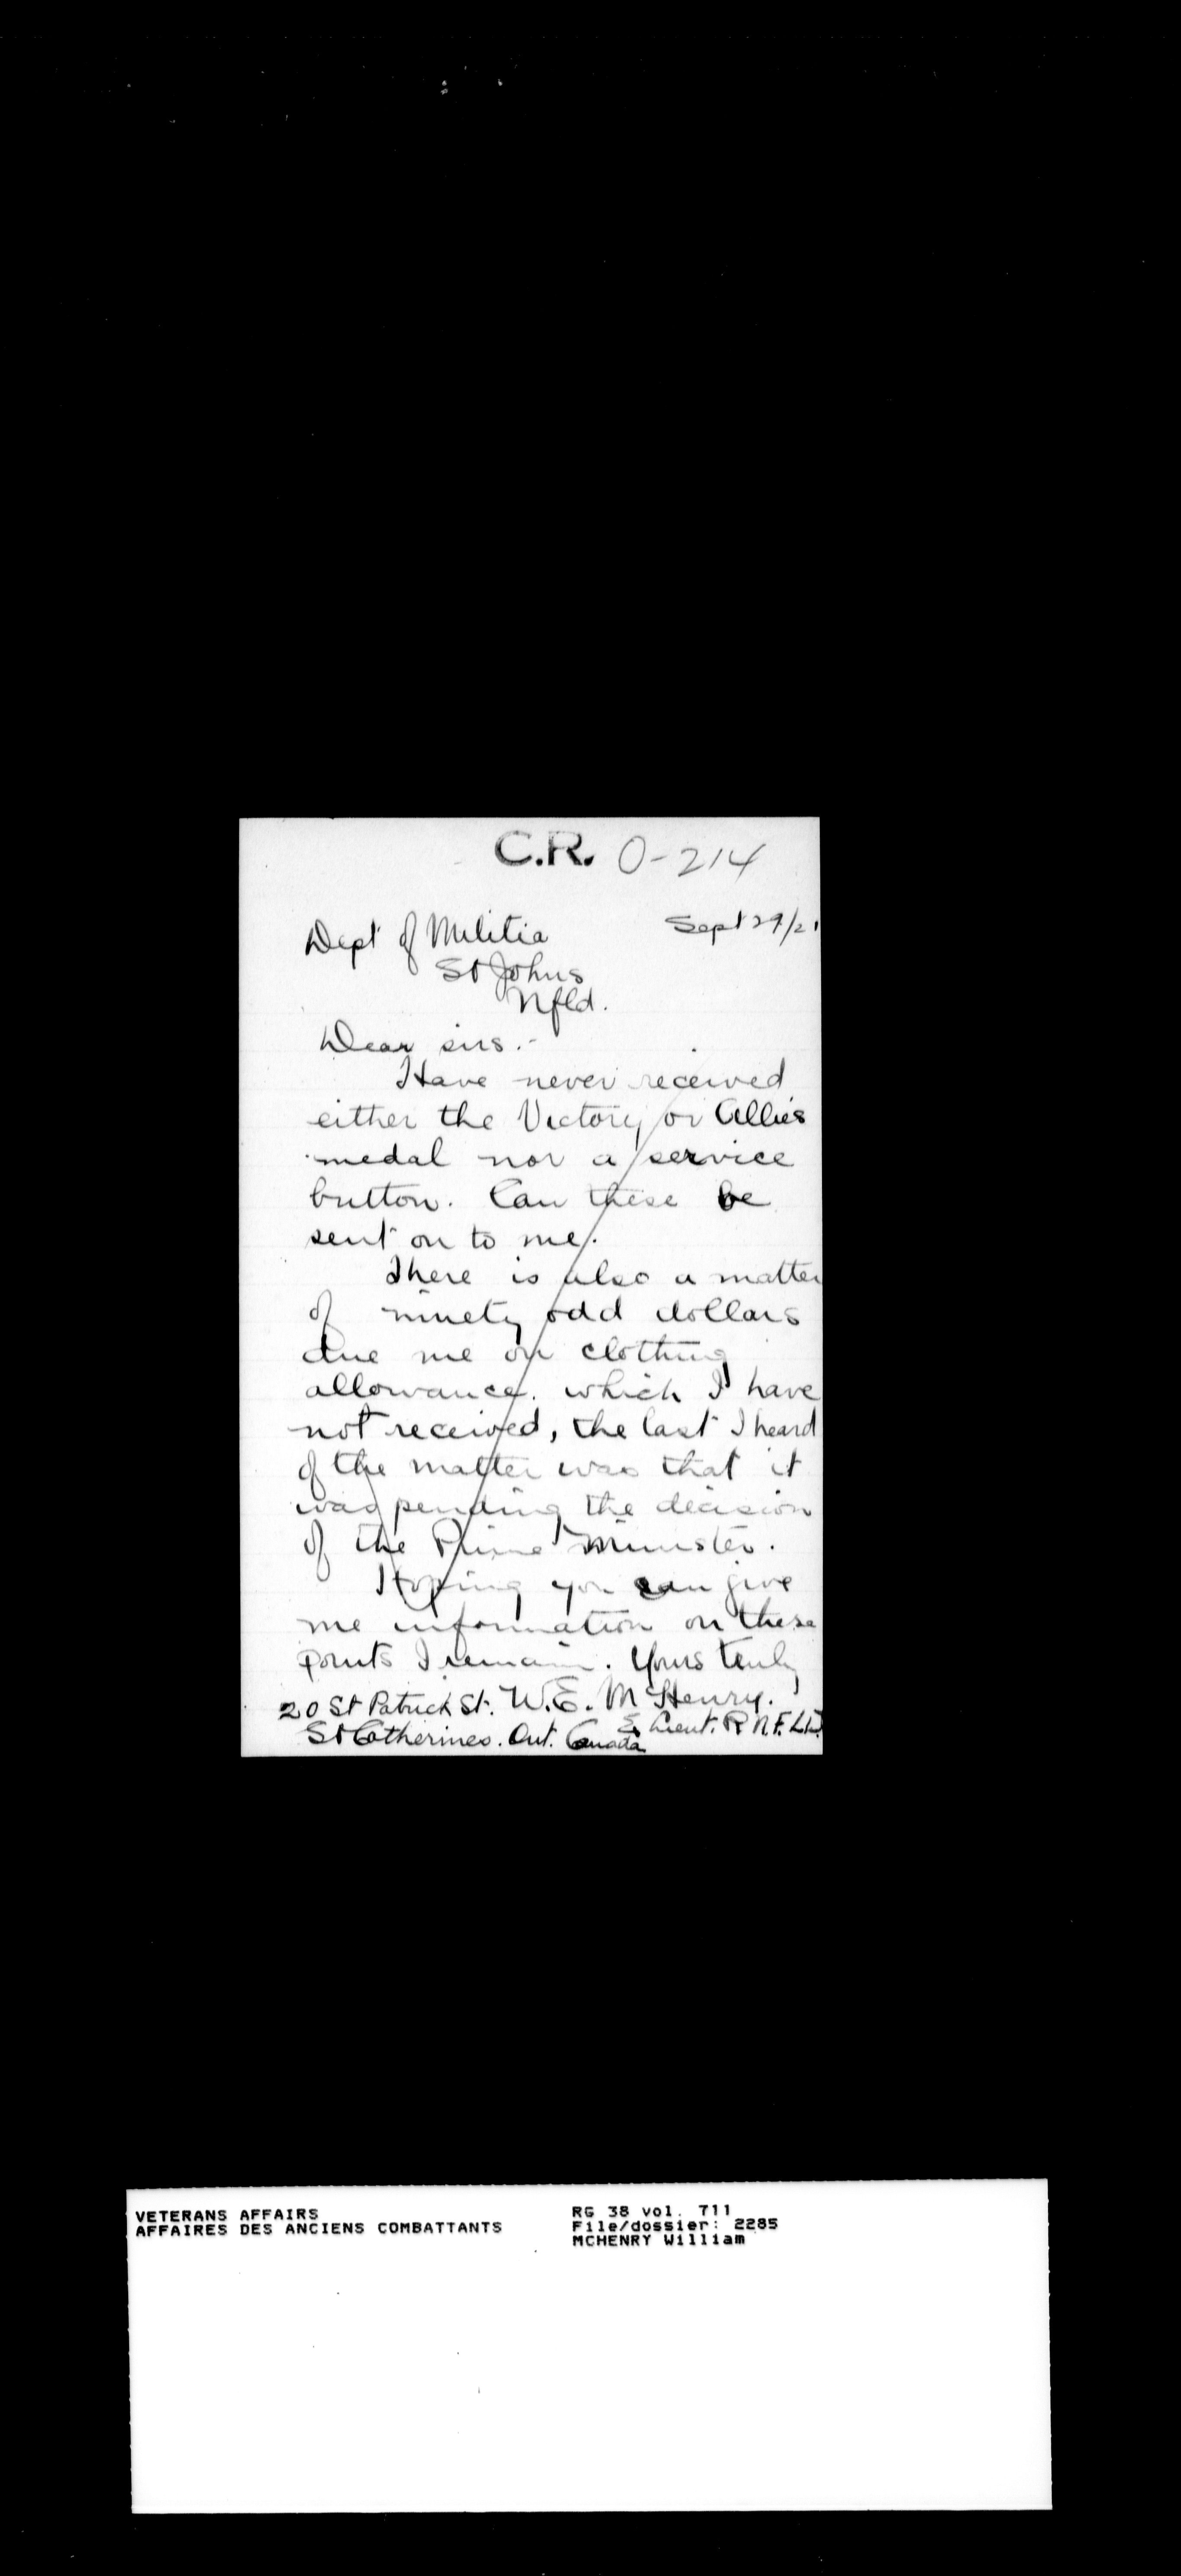 C.R. O-214
Sept 29/21
Dept of Militia
St Johns
Nfld.
Dear sirs.-
Have never received
either the Victory or Allies
medal nor a service
button. Can these be
sent on to me.
There is also a matter
of ninety odd dollars
due me on clothing
allowance. which I have
not received, the last I heard
of the matter was that it
was pending the decision
of the Prime Minister.
Hoping you can give
me information on these
points I remain. Yours truly
W.E. McHenry.
Lieut. R.NFLD.
20 St Patrick St.
St Catherines. Ont. Canada
VETERANS AFFAIRS
AFFAIRES DES ANCIENS COMBATTANTS
RG 38 vol. 711
File/dossier: 2285
MCHENRY William